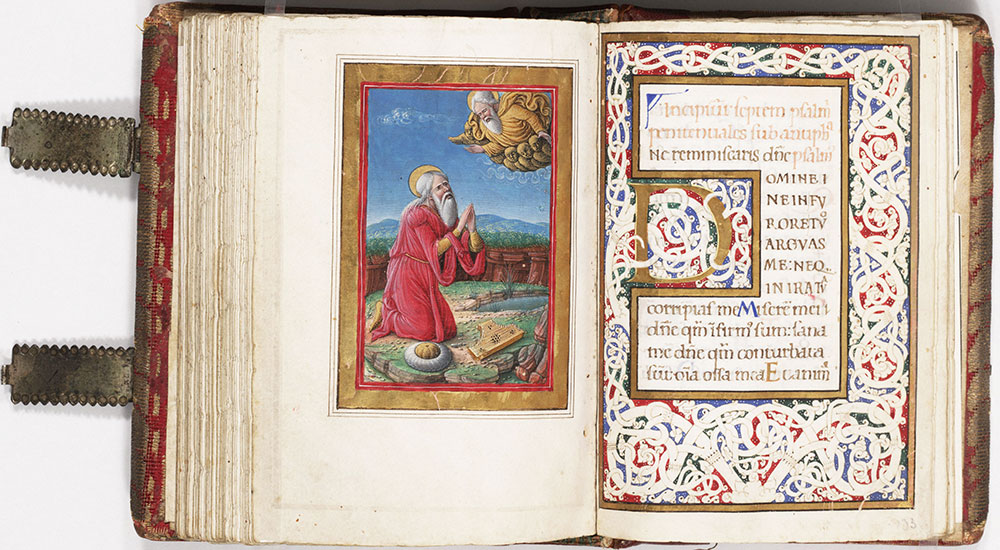 Incipiūt septem psalmi
penitentiales sub antiphō
Ne reminiscaris dn̄e psalmꝰ
DOMINE
NE IN FV
RORE TVO
ARGVAS
ME: NEQ.
IN IRA TVA
corripias me Miserēre mei
dn̄e qm̄ īfirmꝰ sum: sana
me dn̄e qm̄ conturbata
sūt oīa ossa mea Et anima